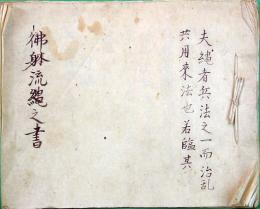 夫縄者兵法之一而治乱
共用来法也若臨其
佛躰流縄之書